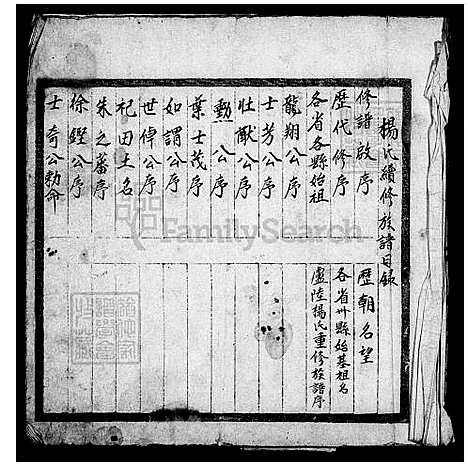 楊氏續修族譜目錄
修譜啟序
歷朝名望
歷代修序
各省州縣始基祖名
各省各縣始祖
盧陸楊氏重修族譜序
龍翔公序
士芳公序
壯猷公序
勲公序
葉士茂序
如謂公序
世倬公序
祀田土名
朱之蕃序
徐鏗公序
士奇公勅命
FamilySearch